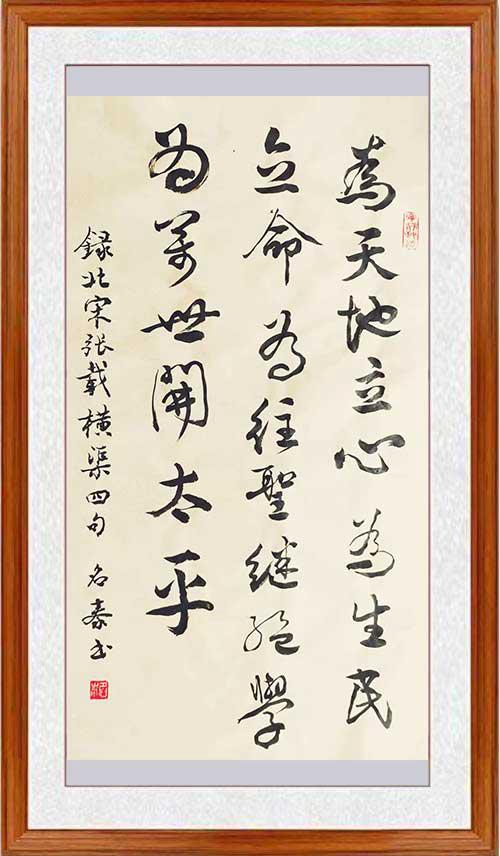 為天地立心為生民
立命為往聖繼絕學
為萬世開太平
録北宋張載橫渠四句 名泰书